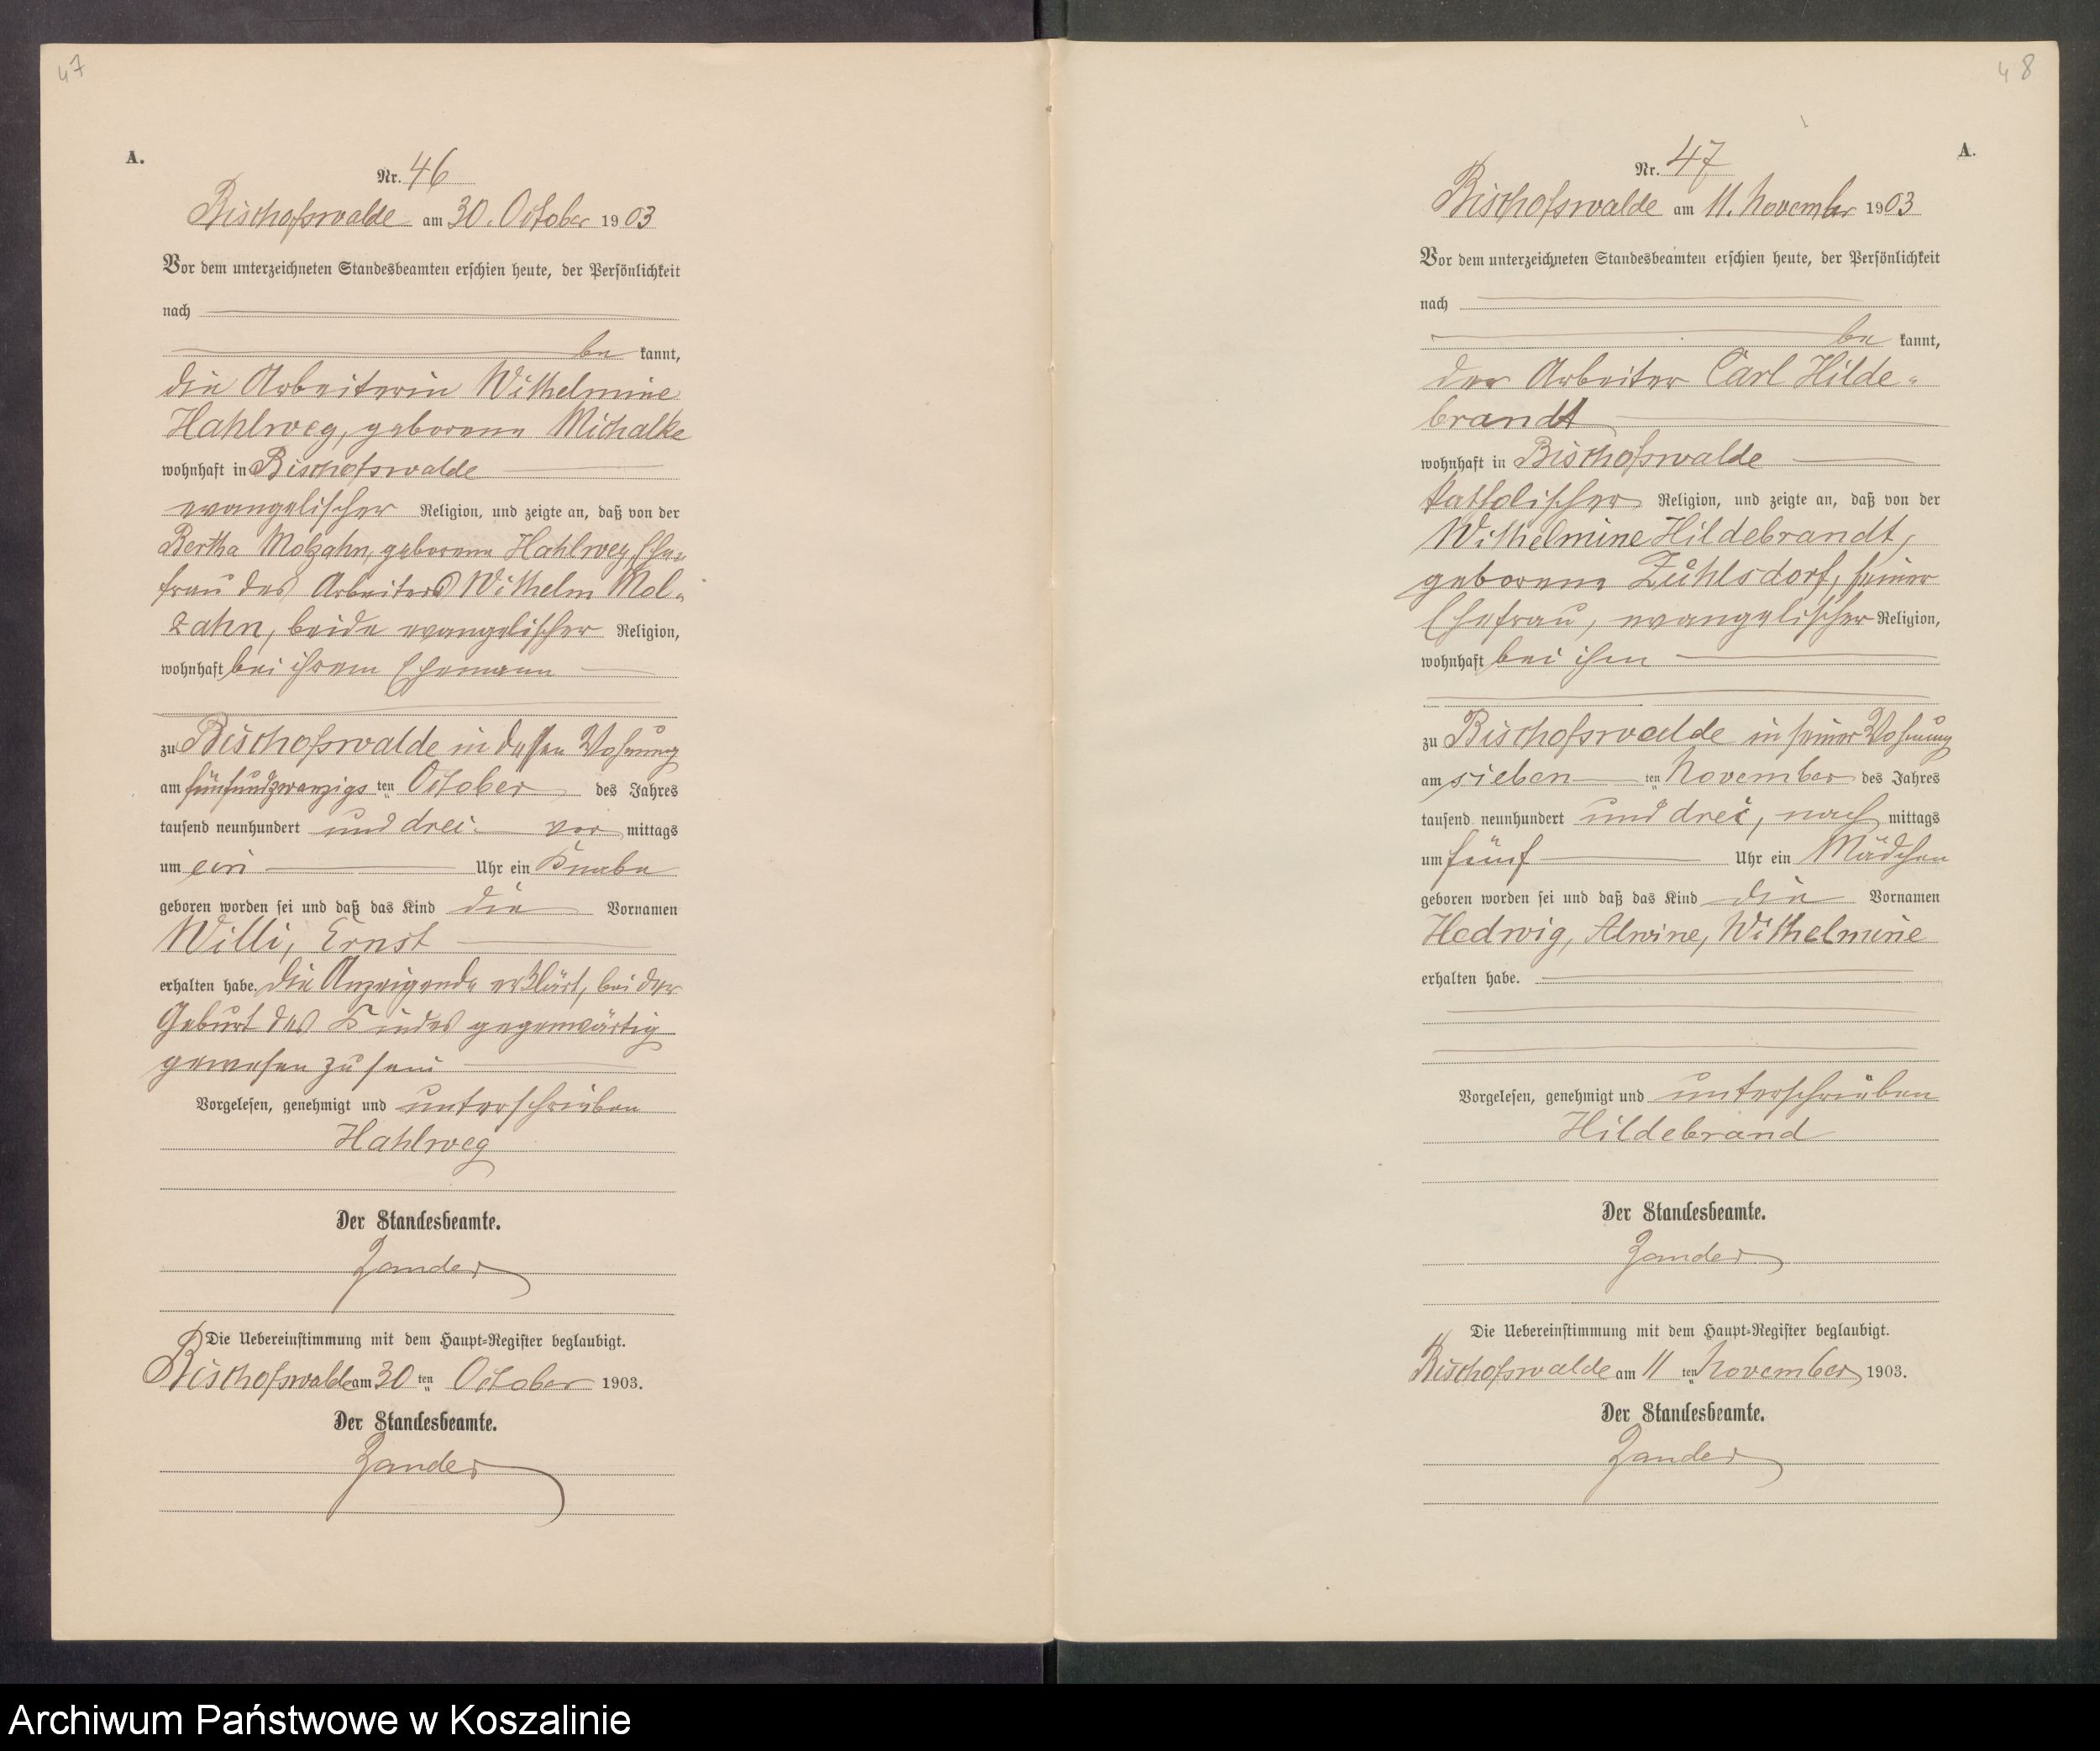 47
A.
Nr. 46
Bischofswalde am 30. October 1903
Vor dem unterzeichneten Standesbeamten erschien heute, der Persönlichkeit
nach
be kannt,
die Arbeiterin Wilhelmine
Hahlweg, geborene Michalke
wohnhaft in Bischofswalde
evangelischer Religion, und zeigte an, daß von der
Bertha Molzahn, geborene Hahlweg, Ehe-
frau des Arbeiters Wilhelm Mol-
zahn, beide evangelischer Religion,
wohnhaft bei ihrem Ehemann
zu Bischofswalde in dessen Wohnung
am fünfundzwanzigs ten October des Jahres
tausend neunhundert und drei vor mittags
um ein Uhr ein Knabe
geboren worden sei und daß das Kind die Vornamen
Willi, Ernst
erhalten habe. Die Anzeigende erklärt, bei der
Geburt des Kindes gegenwärtig
gewesen zu sein
Vorgelesen, genehmigt und unterschrieben
Hahlweg
Der Standesbeamte.
Zander
Die Uebereinstimmung mit dem Haupt-Register beglaubigt.
Bischofswalde am 30 ten October 1903.
Der Standesbeamte.
Zander
48
A.
Nr. 47
Bischofswalde am 11. November 1903
Vor dem unterzeichneten Standesbeamten erschien heute, der Persönlichkeit
nach
be kannt,
der Arbeiter Carl Hilde-
brandt
wohnhaft in Bischofswalde
katholischer Religion, und zeigte an, daß von der
Wilhelmine Hildebrandt,
geborene Zühlsdorf, seiner
Ehefrau, evangelischer Religion,
wohnhaft bei ihm
zu Bischofswalde in seiner Wohnung
am sieben ten November des Jahres
tausend neunhundert und drei, nach mittags
um fünf Uhr ein Mädchen
geboren worden sei und daß das Kind die Vornamen
Hedwig, Alwine, Wilhelmine
erhalten habe.
Vorgelesen, genehmigt und unterschrieben
Hildebrand
Der Standesbeamte.
Zander
Die Uebereinstimmung mit dem Haupt-Register beglaubigt.
Bischofswalde am 11 ten November 1903.
Der Standesbeamte.
Zander
Archiwum Państwowe w Koszalinie